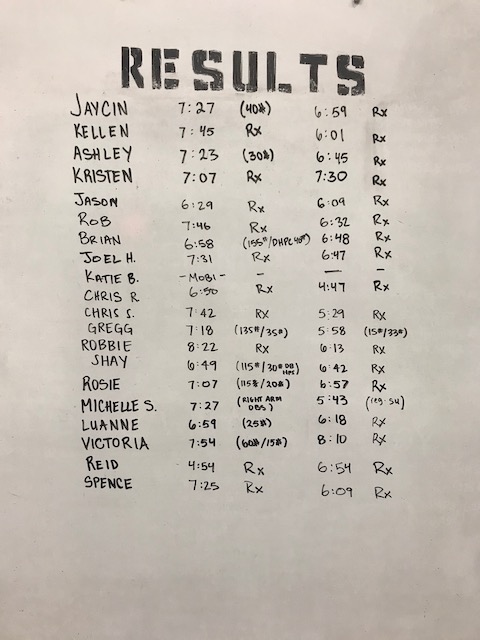 RESULTS
JAYCIN 7:27 (40#) 6:59 Rx
KELLEN 7:45 Rx 6:01 Rx
ASHLEY 7:23 (30#) 6:45 Rx
KRISTEN 7:07 Rx 7:30 Rx
JASON 6:29 Rx 6:09 Rx
ROB 7:46 Rx 6:32 Rx
BRIAN 6:58 (155#/DHPC 40#) 6:48 Rx
JOEL H. 7:31 Rx 6:47 Rx
KATIE B. -MOBI- - — -
CHRIS R 6:50 Rx 4:47 Rx
CHRIS S. 7:42 Rx 5:29 Rx
GREGG 7:18 (135#/35#) 5:58 (15#/33#)
ROBBIE 8:22 Rx 6:13 Rx
SHAY 6:49 (115#/30# DB HPS) 6:42 Rx
ROSIE 7:07 (115#/20#) 6:57 Rx
MICHELLE S. 7:27 (RIGHT ARM DBS) 5:43 (reg. su)
LUANNE 6:59 (25#) 6:18 Rx
VICTORIA 7:54 (60#/15#) 8:10 Rx
REID 4:54 Rx 6:54 Rx
SPENCE 7:25 Rx 6:09 Rx